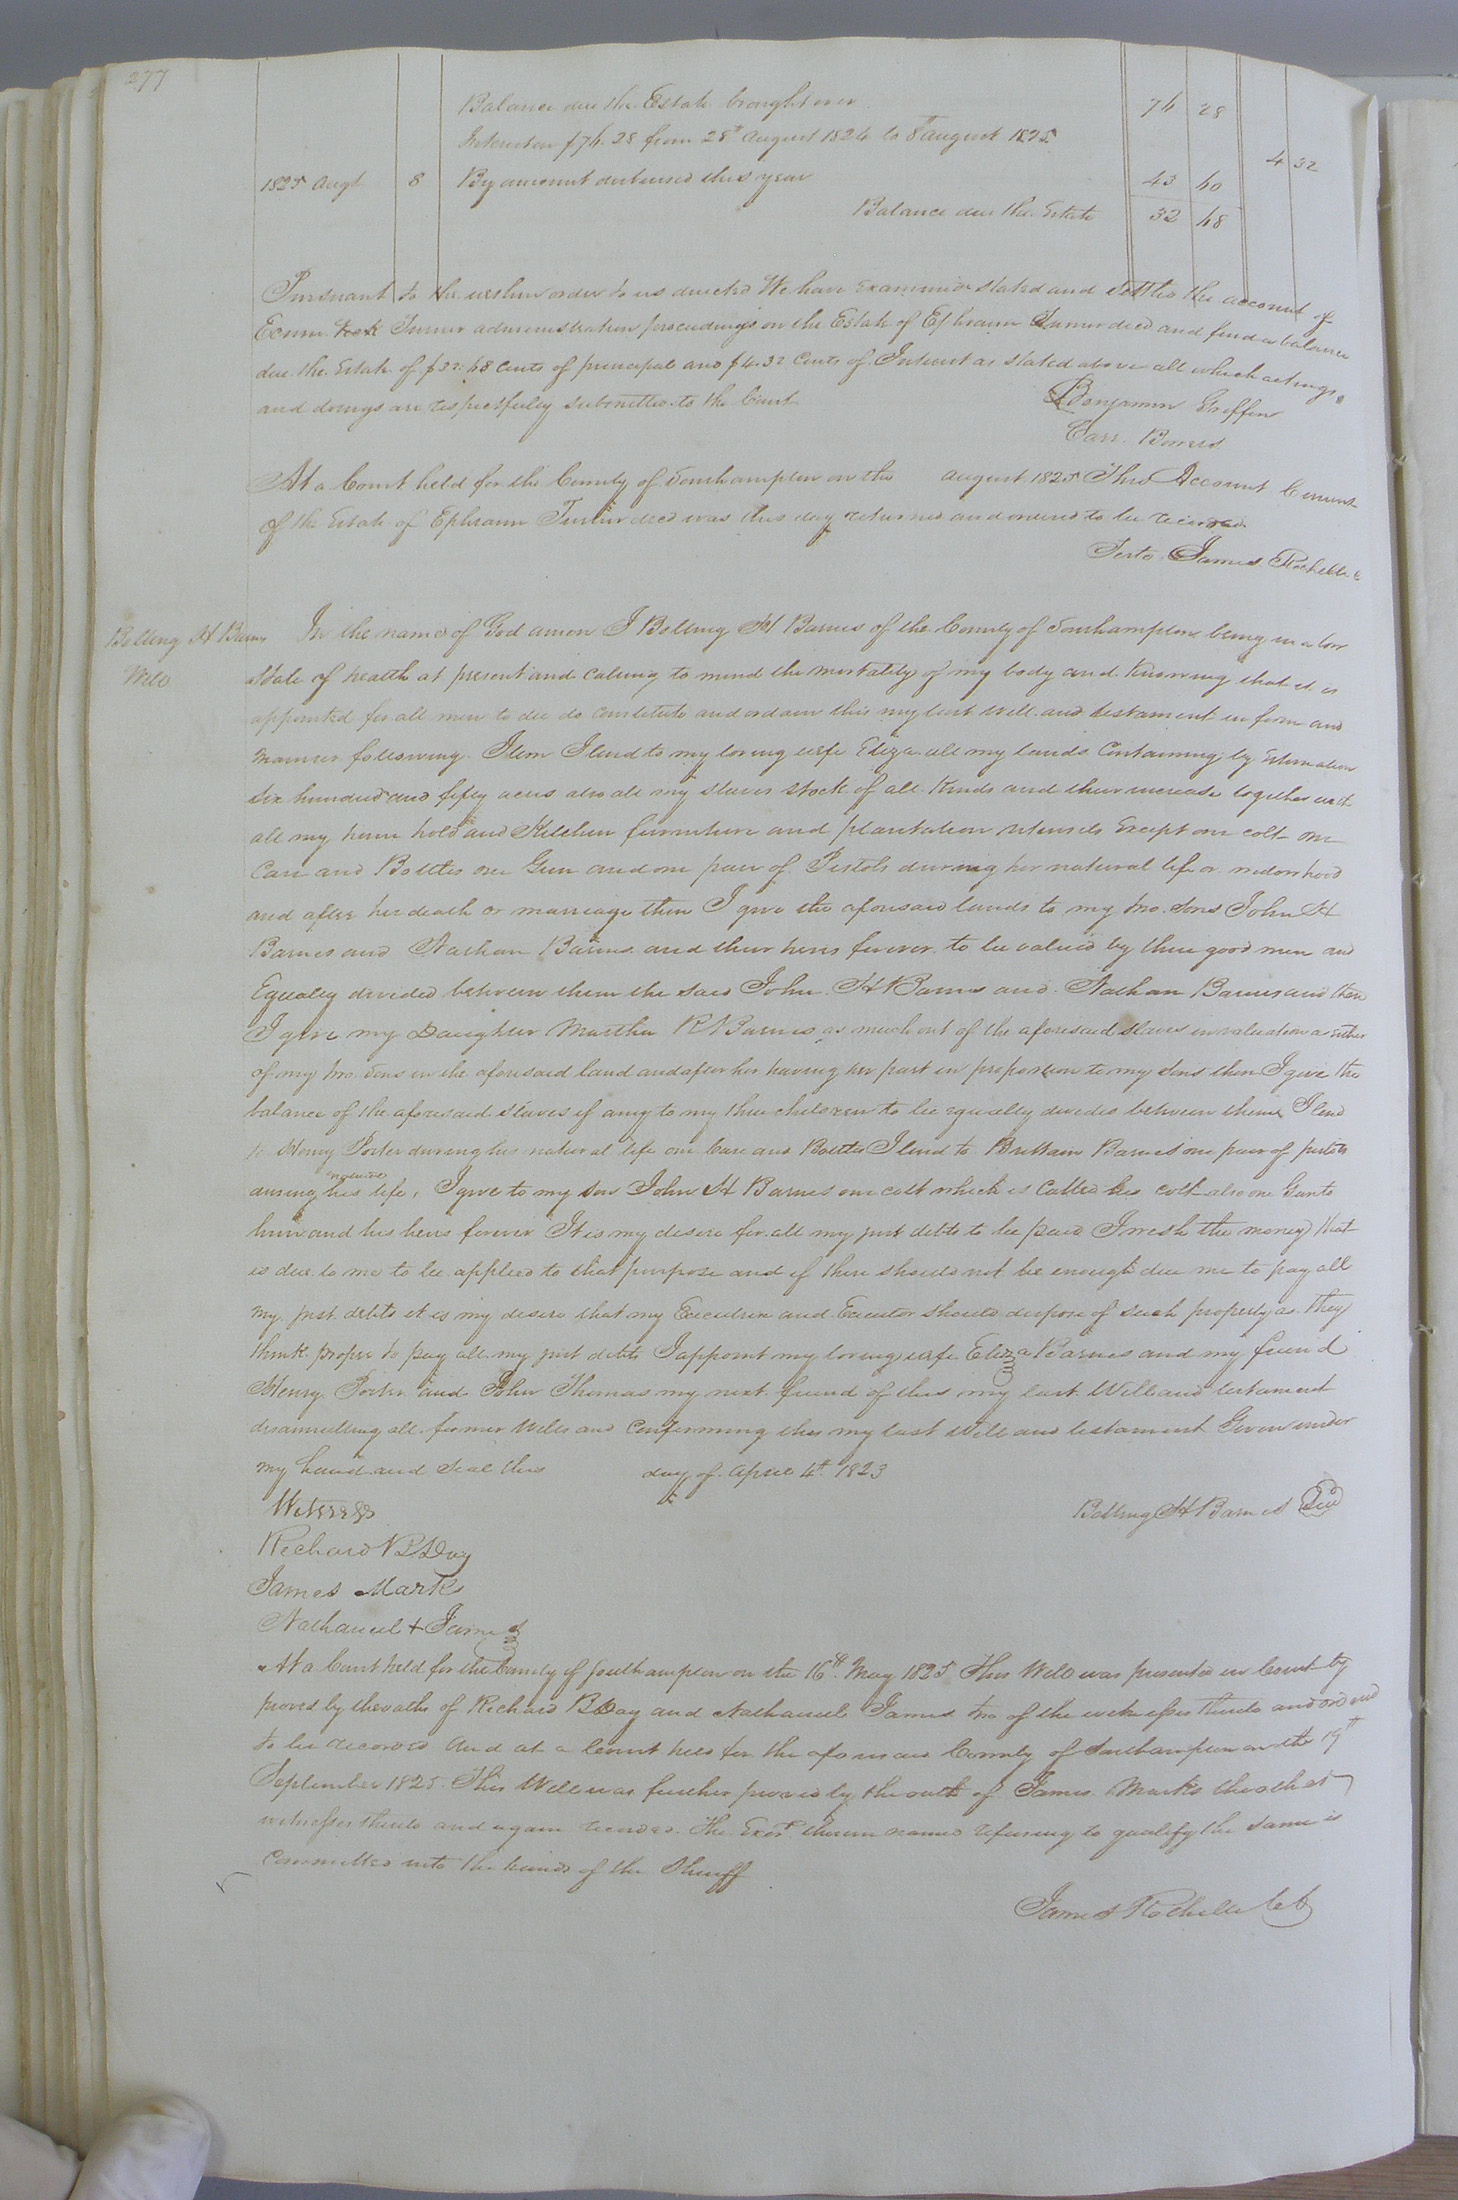 277
Balance due the Estate brought over 74 28
Interest on $74.28 from 28th August 1824 to 8 August 1825 4 32
1825 Augt 8 By amount disbursed this year 43 60
Balance due the Estate 32 68
Pursuant to the within order to us directed We have examined stated and settled the account of
Turner administration proceedings on the Estate of Ephraim Turner decd and find a balance
due the Estate of $32.68 cents of principal and $4.32 cents of Interest as stated above all which actings
and doings are respectfully submitted to the Court
Benjamin Griffin
Carr. Bowers
At a Court held for the County of Southampton on the August 1825 This Account Current
of the Estate of Ephraim Turner decd was this day returned and ordered to be recorded
Teste James Rochelle C
Bolling H Barnes
Will
In the name of God amen I Bolling H Barnes of the County of Southampton being in a low
state of health at present and calling to mind the mortality of my body and Knowing that it is
appointed for all men to die do constitute and ordain this my last will and testament in form and
manner following. Item I lend to my loving wife Eliza all my lands Containing by Estimation
six hundred and fifty acres also all my slaves stock of all Kinds and their increase together with
all my house hold and Kitchen furniture and plantation utensils Except one colt one
Case and Bottles one Gun and one pair of Pistols during her natural life or widowhood
and after her death or marriage then I give the aforesaid lands to my two sons John H
Barnes and Nathan Barnes and their heirs forever to be valued by three good men and
Equally divided between them the said John H Barnes and Nathan Barnes and then
I give my Daughter Martha R Barnes as much out of the aforesaid slaves in valuation as either
of my two sons in the aforesaid land and after her having her part in proportion to my sons then I give the
balance of the aforesaid slaves if any to my three children to be equally divided between them I lend
to Henry Porter during his natural life one Case and Bottles I lend to Brittain Barnes one pair of pistols
during his natural life, I give to my son John H Barnes one colt which is Called his colt also one Gun to
him and his heirs forever It is my desire for all my just debts to be paid I wish the money that
is due to me to be applied to that purpose and if there should not be enough due me to pay all
my just debts it is my desire that my Executrix and Executor should dispose of such property as they
think proper to pay all my just debts I appoint my loving wife Eliza Barnes and my friend
Henry Porter and John Thomas my next friend of this my last Will and testament
disannulling all former Wills and Confirming this my last Will and testament Given under
my hand and seal this day of April 4th 1823
Witness
Bolling H Barnes Seal
Richard B Day
James Marks
Nathaniel + James
At a Court held for the County of Southampton on the 16th May 1825 This Will was presented in Court by
proved by the oaths of Richard B Day and Nathaniel James two of the witnesses thereto and ordered
to be recorded And at a Court held for the aforesaid County of Southampton on the 19th
September 1825 This Will was further proved by the oath of James Marks the other
witnesses thereto and again recorded. The Exors therein named refusing to qualify the same is
Committed into the hands of the Sheriff
James Rochelle CC